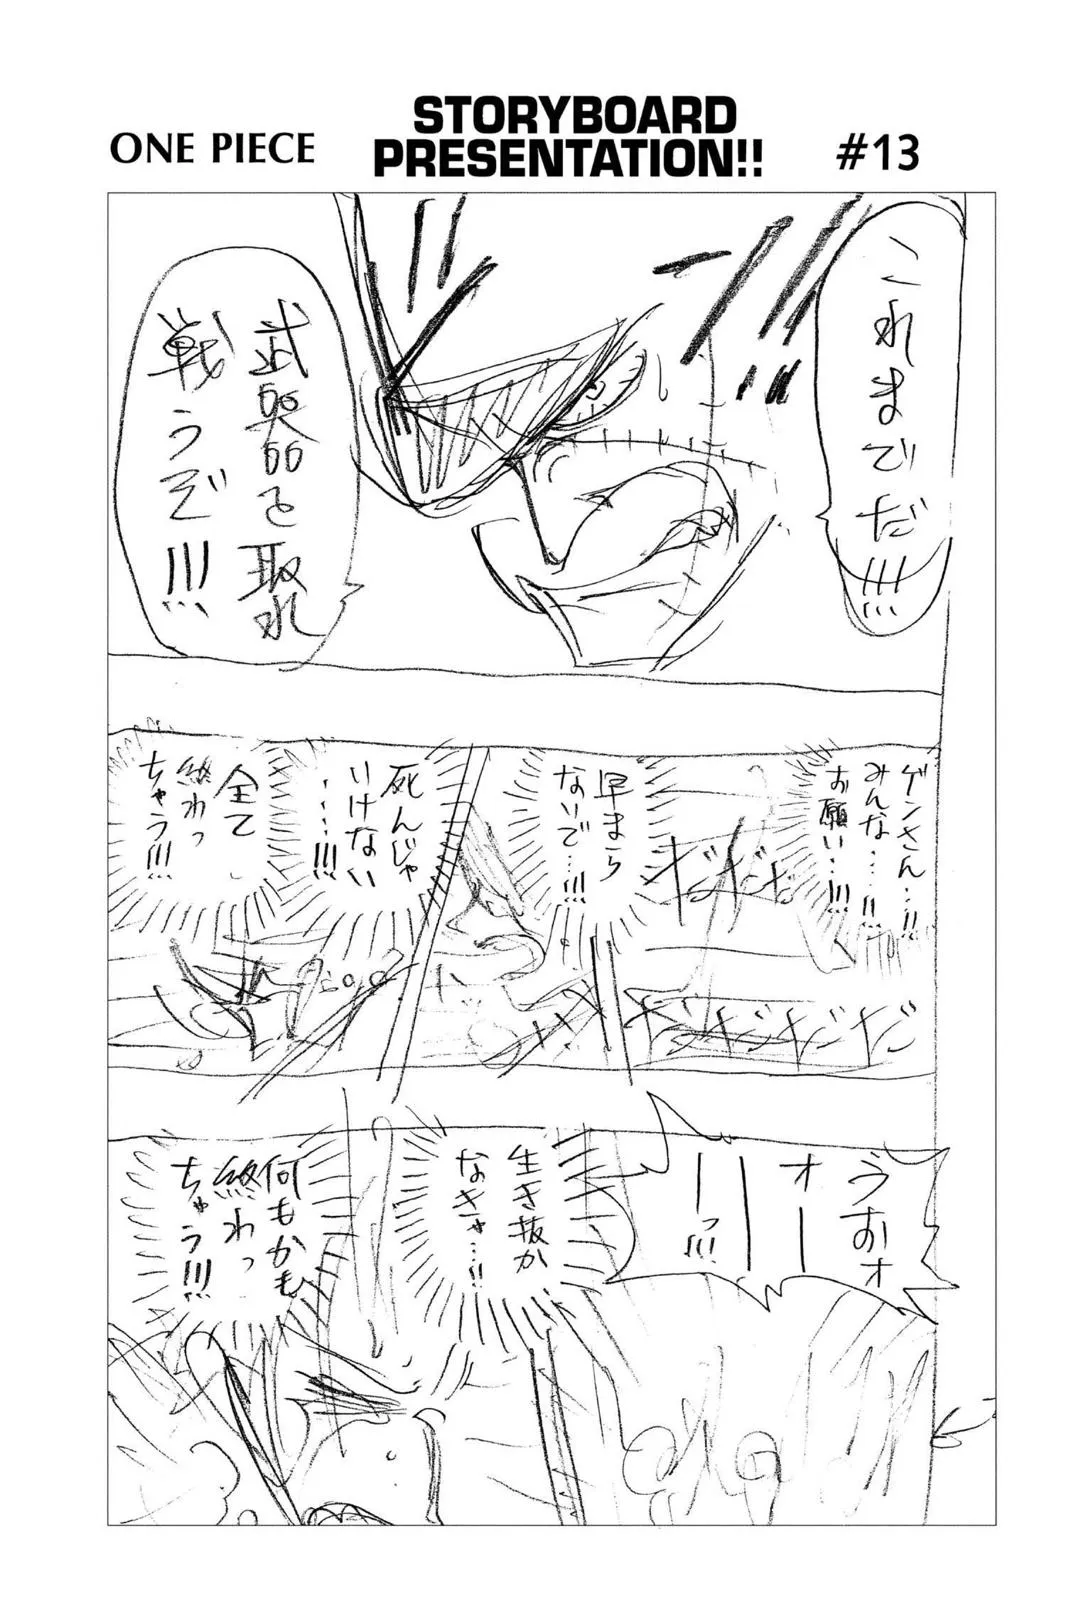 ONE PIECE
STORYBOARD
PRESENTATION!!
#13
これまでだ!!!
武器を取れ
戦うぞ!!!
ゲンさん…!!
みんな…!!
お願い…!!!
だだだ
だだだだだ
早まら
ないで…!!!
死んじゃ
いけない
…!!!
全て
終わっ
ちゃう!!!
うおォ
オー
ー
ーっ!!!
生き抜か
なきゃ…!!
何もかも
終わっ
ちゃう!!!